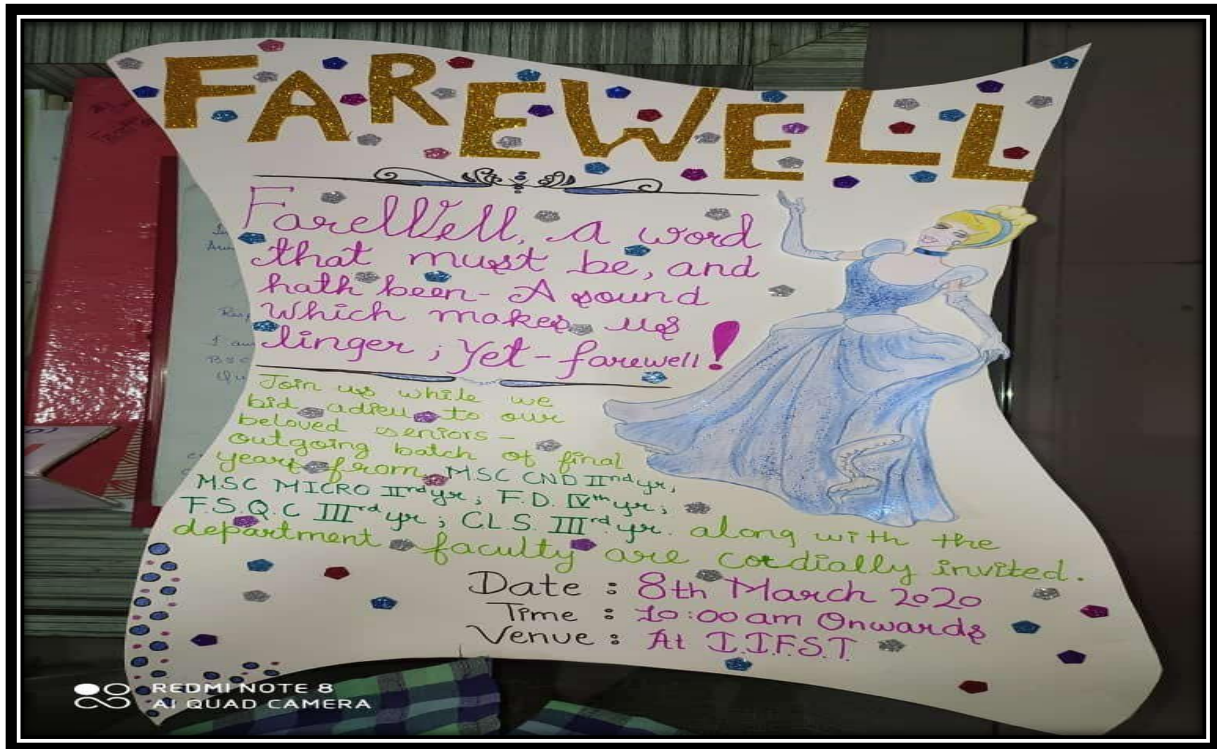 FAREWELL
FareWell, a word
that must be, and
hath been - A sound
which makes us
linger; Yet - farewell!
Join us while we
bid adieu to our
beloved seniors -
outgoing batch of final
years from MSC CND IInd yr,
MSC MICRO IInd yr; F.D. IVth yr;
F.S.Q.C IIIrd yr; CLS. IIIrd yr. along with the
department faculty are cordially invited.
Date : 8th March 2020
Time : 10:00 am Onwards
Venue : At I.I.F.S.T
REDMI NOTE 8
AI QUAD CAMERA